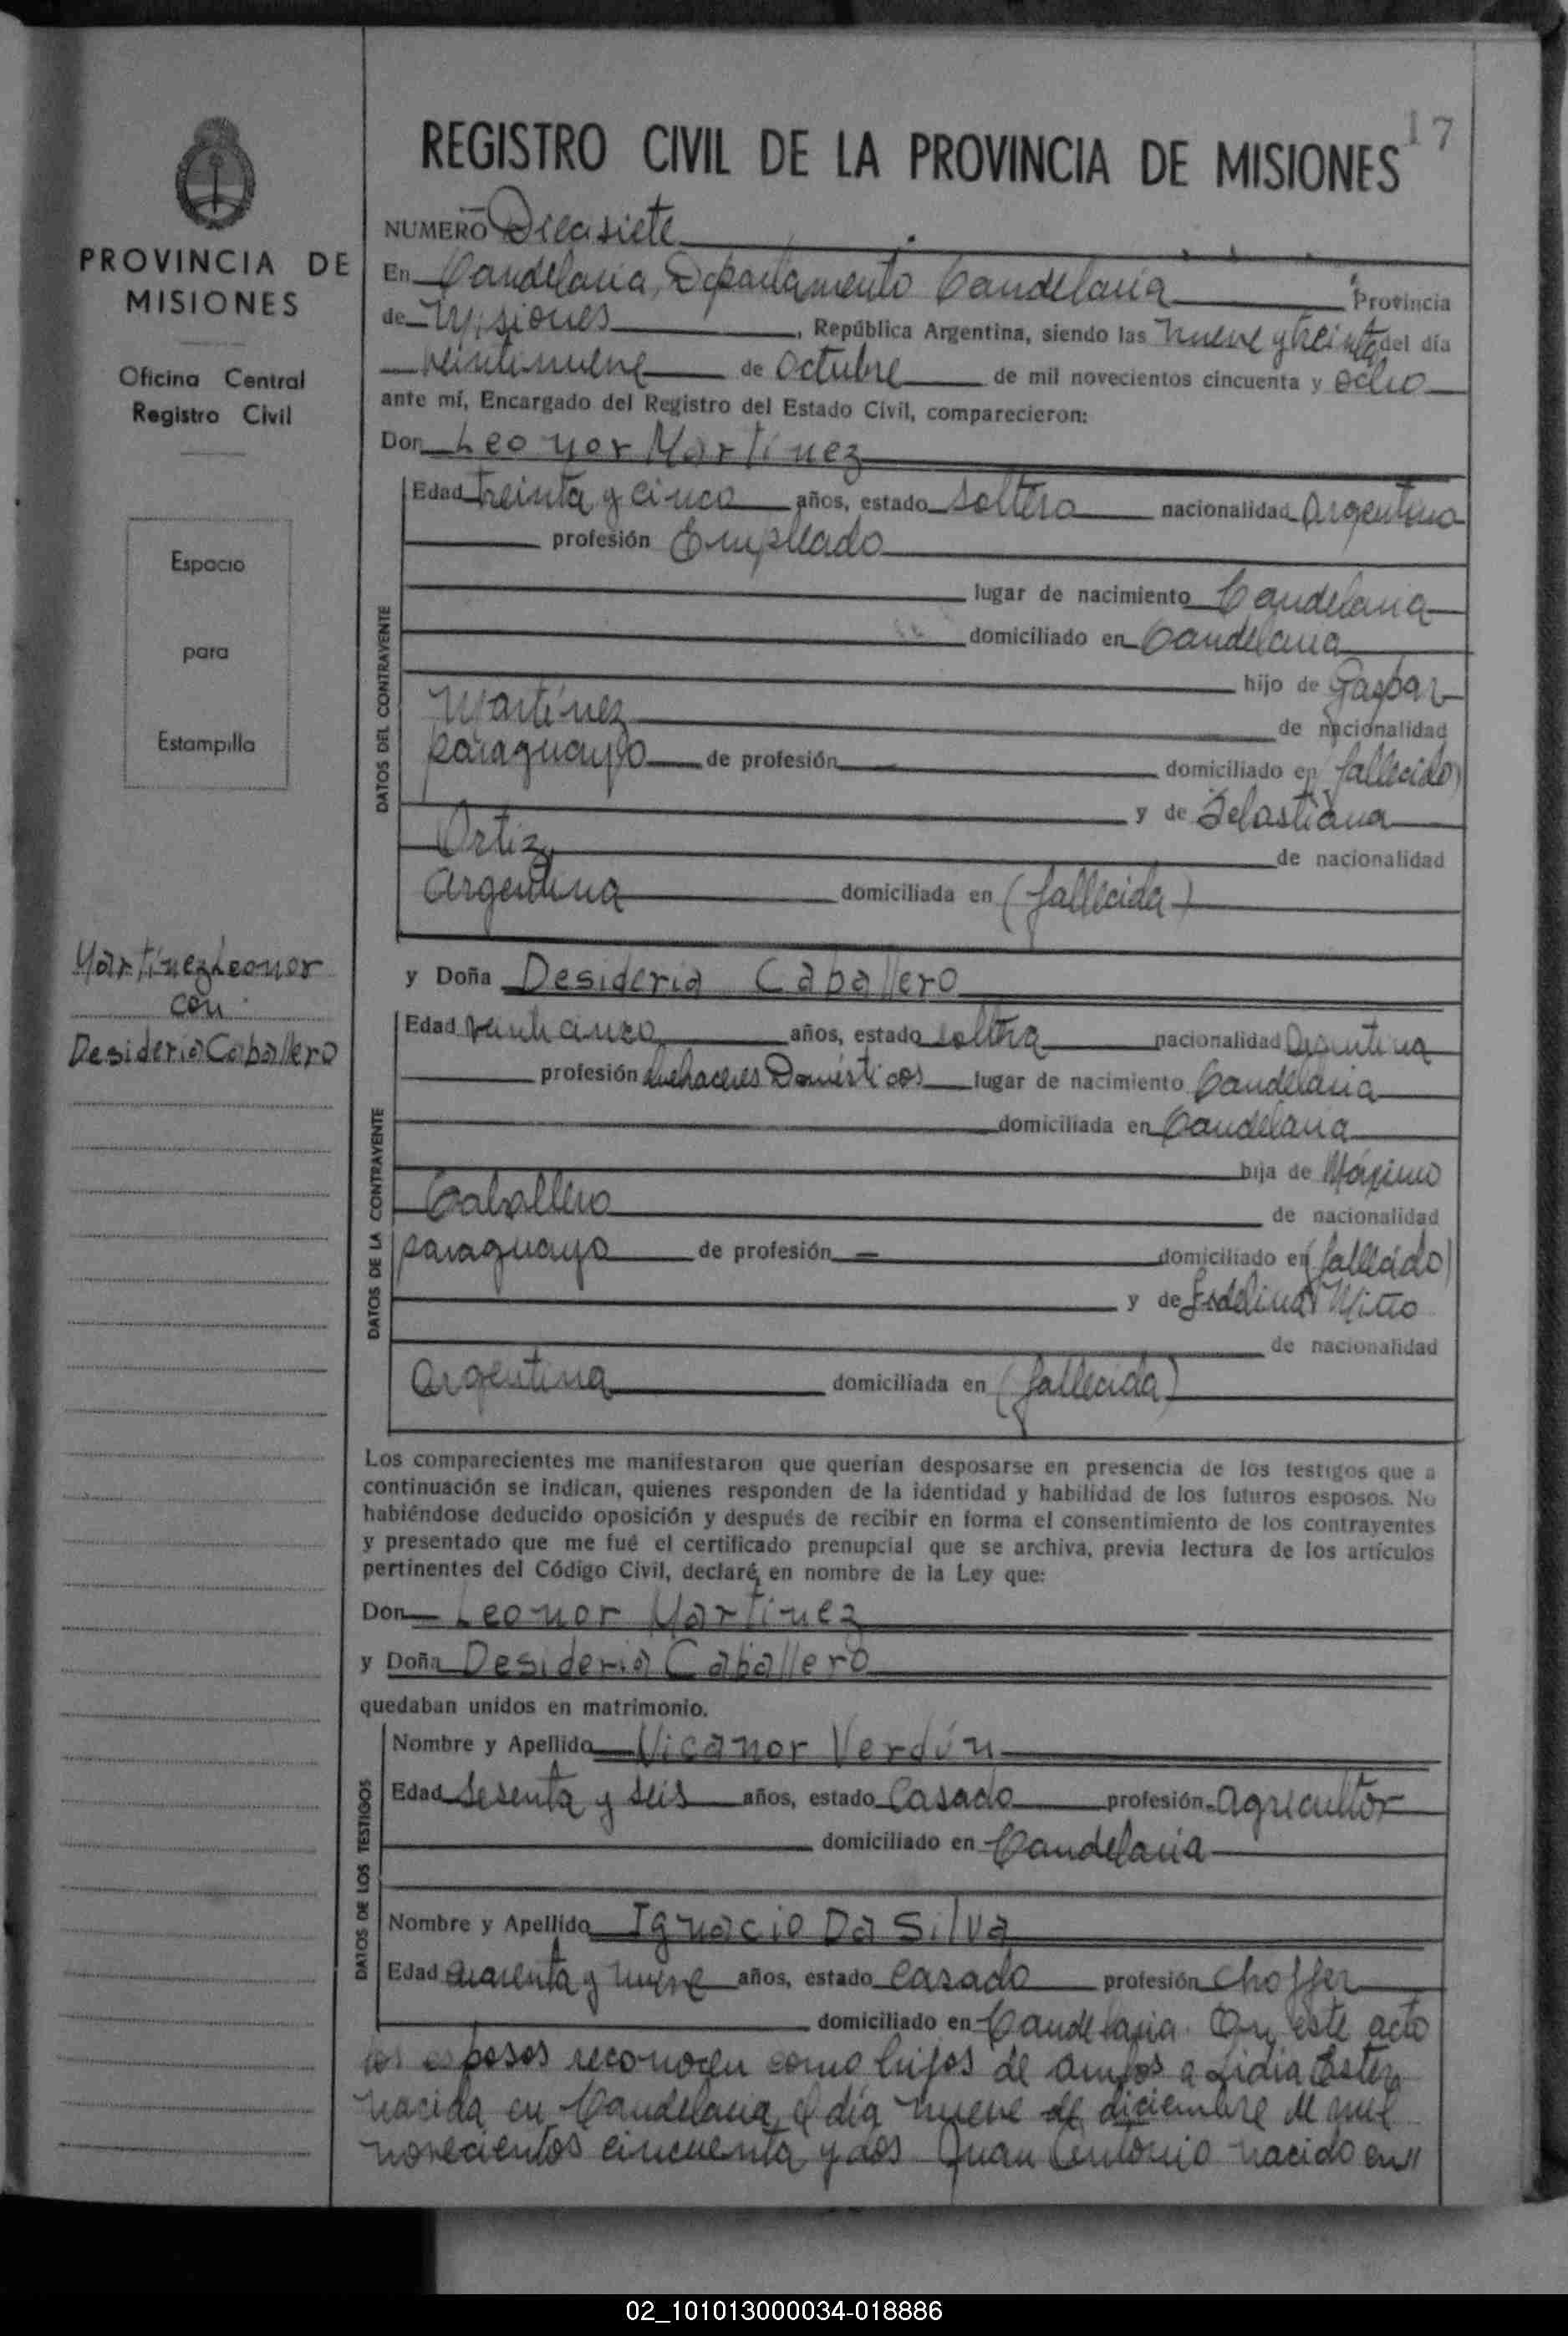 17
REGISTRO CIVIL DE LA PROVINCIA DE MISIONES
PROVINCIA DE
MISIONES
Oficina Central
Registro Civil
Espacio
para
Estampilla
Martínez Leonor
con
Desideria Caballero
NUMERO Diecisiete
En Candelaria, Departamento Candelaria Provincia
de Misiones, República Argentina, siendo las nueve y treinta del día
veintinueve de Octubre de mil novecientos cincuenta y ocho
ante mí, Encargado del Registro del Estado Civil, comparecieron:
Don Leonor Martínez
DATOS DEL CONTRAYENTE
Edad treinta y cinco años, estado soltero nacionalidad Argentino
profesión Empleado
lugar de nacimiento Candelaria
domiciliado en Candelaria
hijo de Gaspar
Martínez de nacionalidad
paraguayo de profesión domiciliado en (fallecido)
y de Sebastiana
Ortiz, de nacionalidad
argentina domiciliada en (fallecida)
y Doña Desideria Caballero
DATOS DE LA CONTRAYENTE
Edad veinticinco años, estado soltera nacionalidad Argentina
profesión quehaceres Domésticos lugar de nacimiento Candelaria
domiciliada en Candelaria
hija de Máximo
Caballero de nacionalidad
paraguayo de profesión — domiciliado en (fallecido)
y de Fidelina Miño
de nacionalidad
Argentina domiciliada en (fallecida)
Los comparecientes me manifestaron que querían desposarse en presencia de los testigos que a
continuación se indican, quienes responden de la identidad y habilidad de los futuros esposos. No
habiéndose deducido oposición y después de recibir en forma el consentimiento de los contrayentes
y presentado que me fué el certificado prenupcial que se archiva, previa lectura de los artículos
pertinentes del Código Civil, declaré, en nombre de la Ley que:
Don Leonor Martínez
y Doña Desideria Caballero
quedaban unidos en matrimonio.
DATOS DE LOS TESTIGOS
Nombre y Apellido Nicanor Verdún
Edad Sesenta y seis años, estado Casado profesión agricultor
domiciliado en Candelaria
Nombre y Apellido Ignacio Da Silva
Edad cuarenta y nueve años, estado casado profesión choffer
domiciliado en Candelaria. En este acto
los esposos reconocen como hijos de ambos a Lidia Ester
nacida en Candelaria, el día nueve de diciembre de mil
novecientos cincuenta y dos Juan Antonio nacido en//
02_101013000034-018886